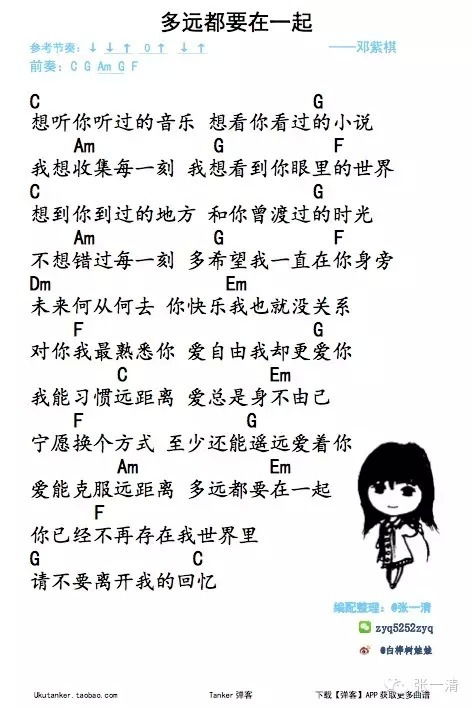 多远都要在一起
参考节奏: ↓ ↓ ↑ 0 ↑ ↓ ↑
——邓紫棋
前奏: C G Am G F
C G
想听你听过的音乐 想看你看过的小说
Am G F
我想收集每一刻 我想看到你眼里的世界
C G
想到你到过的地方 和你曾渡过的时光
Am G F
不想错过每一刻 多希望我一直在你身旁
Dm Em
未来何从何去 你快乐我也就没关系
F G
对你我最熟悉你 爱自由我却更爱你
C Em
我能习惯远距离 爱总是身不由己
F G
宁愿换个方式 至少还能遥远爱着你
Am Em
爱能克服远距离 多远都要在一起
F
你已经不再存在我世界里
G C
请不要离开我的回忆
编配整理: @张一清
zyq5252zyq
@白桦树娃娃
张一清
Ukutanker.taobao.com
Tanker 弹客
下载【弹客】APP 获取更多曲谱